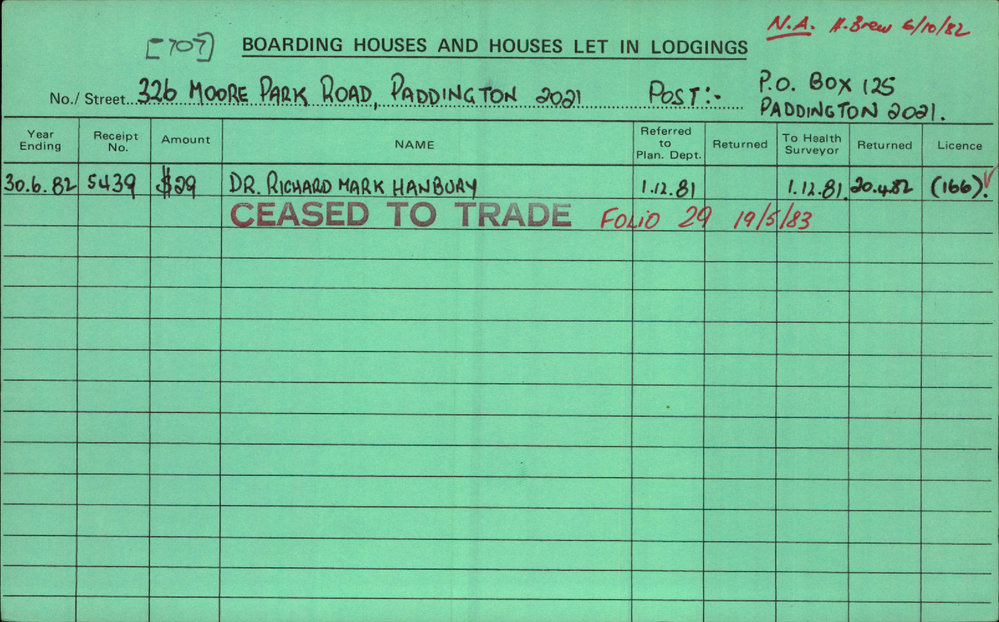 N.A. H. Brew 6/10/82
[707] BOARDING HOUSES AND HOUSES LET IN LODGINGS
No./ Street 326 MOORE PARK ROAD, PADDINGTON 2021 POST:- P.O. BOX 125
PADDINGTON 2021.
Year Ending Receipt No. Amount NAME Referred to Plan. Dept. Returned To Health Surveyor Returned Licence
30.6.82 5439 $29 DR. RICHARD MARK HANBURY 1.12.81 1.12.81 20.4.82 (166). ✓
CEASED TO TRADE FOLIO 29 19/5/83